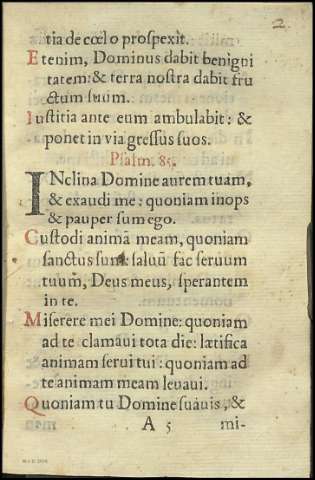 2
tia de cœlo prospexit.
Etenim, Dominus dabit benigni
tatem: & terra nostra dabit fru
ctum suum.
Iustitia ante eum ambulabit: &
ponet in via gressus suos.
Psalm. 85.
INclina Domine aurem tuam,
& exaudi me: quoniam inops
& pauper sum ego.
Custodi animã meam, quoniam
sanctus sum: saluũ fac seruum
tuum, Deus meus, sperantem
in te.
Miserere mei Domine: quoniam
ad te clamaui tota die: lætifica
animam serui tui: quoniam ad
te animam meam leuaui.
Quoniam tu Domine suauis, &
A 5 mi-